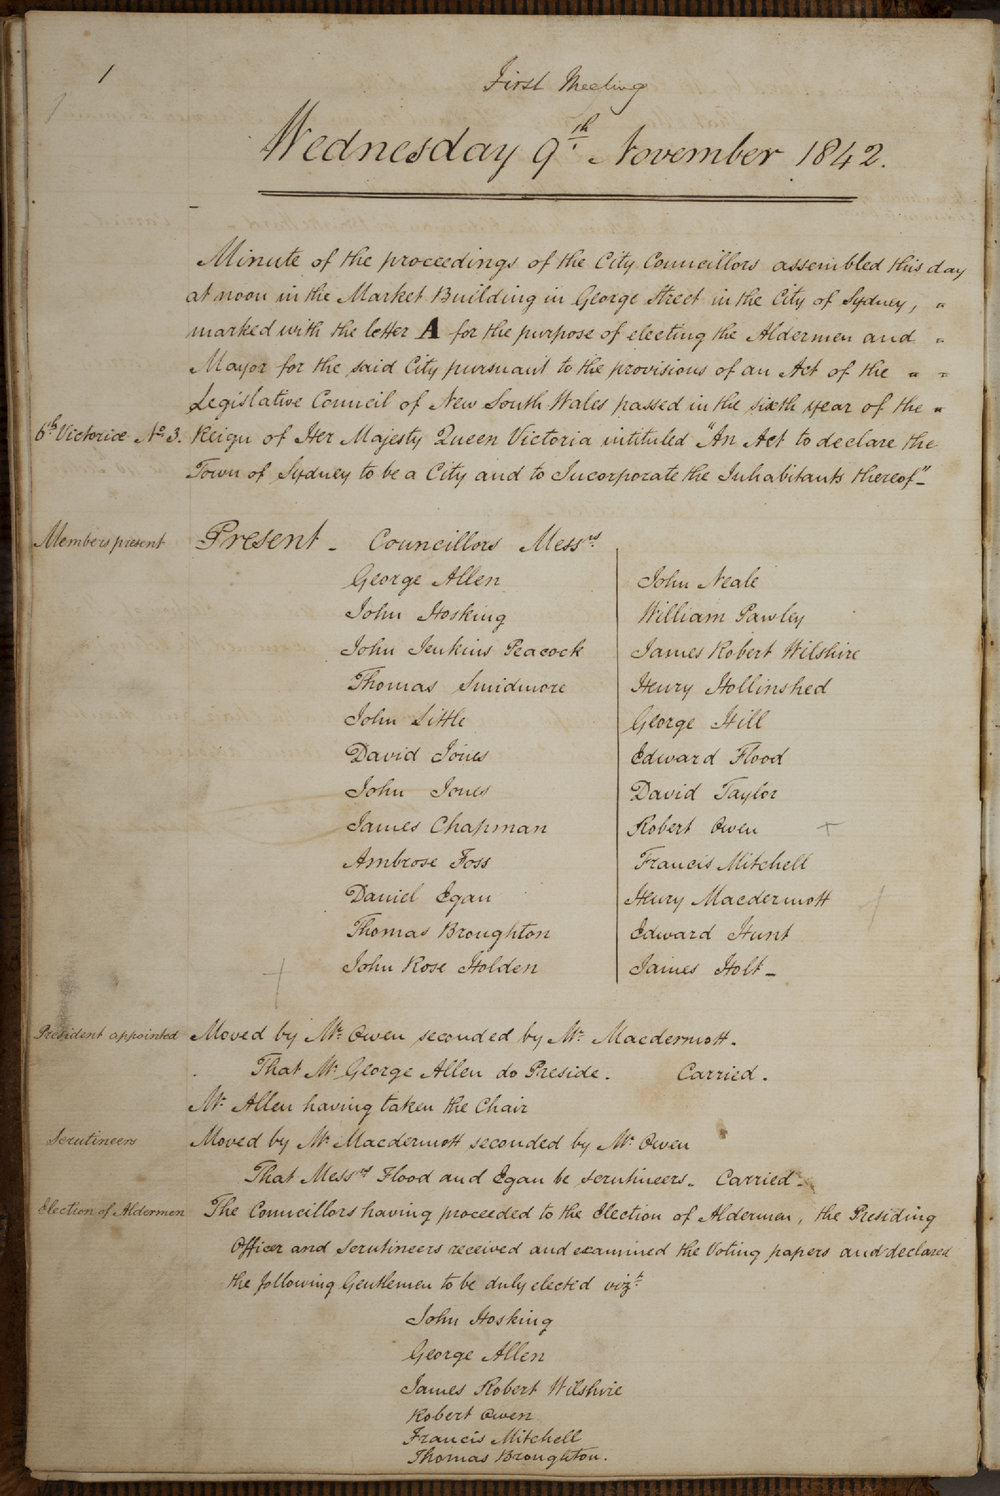 1
First Meeting
Wednesday 9th November 1842.
Minute of the proceedings of the City Councillors assembled this day
at noon in the Market Building in George Street in the City of Sydney, "
marked with the letter A for the purpose of electing the Aldermen and "
Mayor for the said City pursuant to the provisions of an Act of the " "
Legislative Council of New South Wales passed in the sixth year of the "
6th Victoriæ No 3. Reign of Her Majesty Queen Victoria intituled "An Act to declare the
Town of Sydney to be a City and to Incorporate the Inhabitants thereof"_
Members present Present _ Councillors Messrs.
George Allen John Neale
John Hosking William Pawley
John Jenkins Peacock James Robert Wilshire
Thomas Smidmore Henry Hollinshed
John Little George Hill
David Jones Edward Flood
John Jones David Taylor
James Chapman Robert Owen
Ambrose Foss Francis Mitchell
Daniel Egan Henry Macdermott
Thomas Broughton Edward Hunt
John Rose Holden James Holt _
President appointed Moved by Mr Owen seconded by Mr Macdermott.
That Mr George Allen do Preside. Carried.
Mr Allen having taken the Chair
Scrutineers Moved by Mr Macdermott seconded by Mr Owen
That Messrs Flood and Egan be scrutineers. Carried.
Election of Aldermen The Councillors having proceeded to the Election of Aldermen, the Presiding
Officer and Scrutineers received and examined the Voting papers and declared
the following Gentlemen to be duly elected vizt.
John Hosking
George Allen
James Robert Wilshire
Robert Owen
Francis Mitchell
Thomas Broughton.